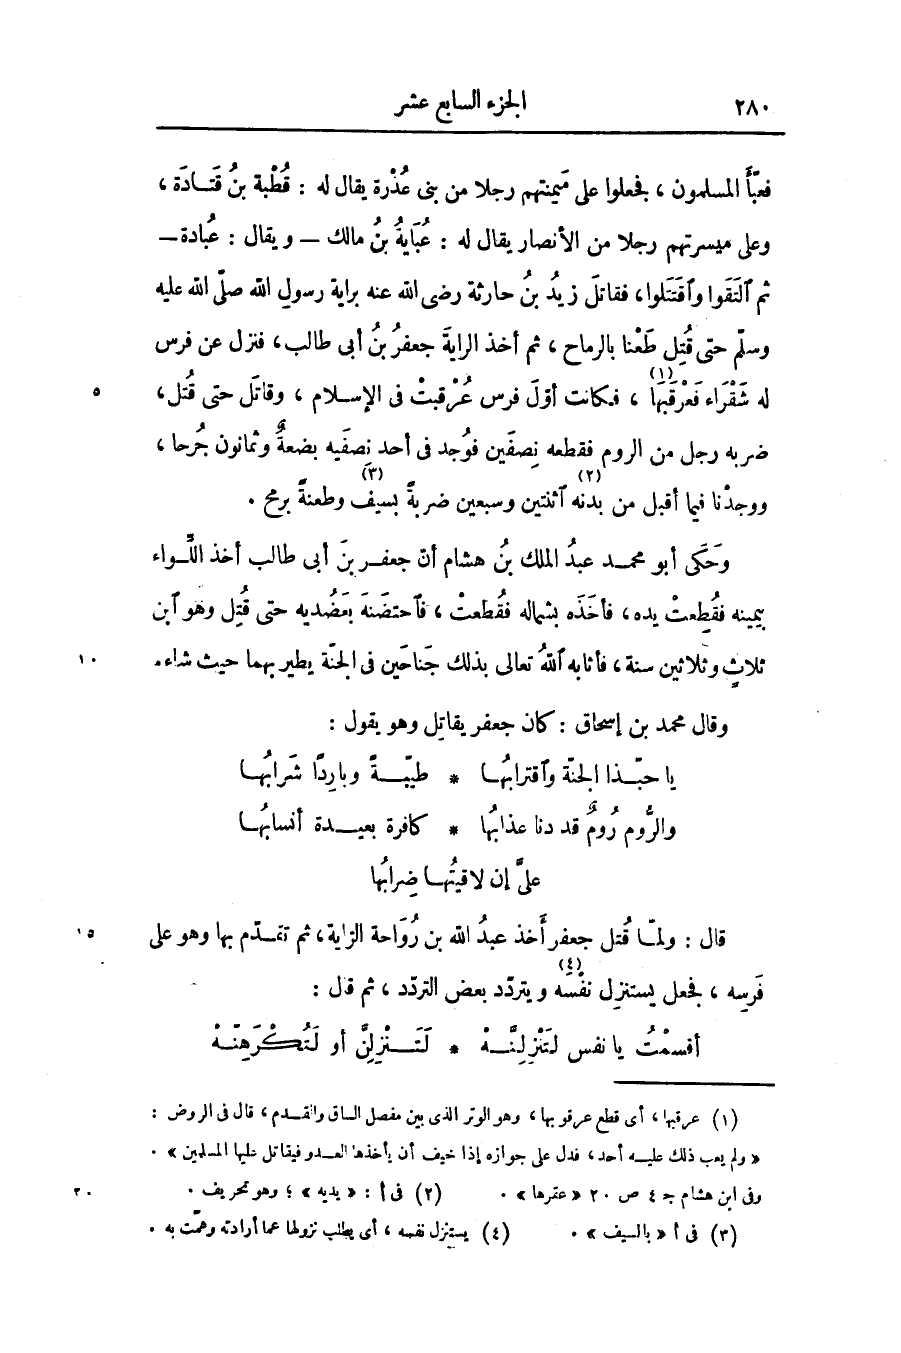 ٢٨٠ الجزء السابع عشر
فعبَّأ المسلمون ، فجعلوا على مَيمنتهم رجلا من بنى عُذْرة يقال له : قُطْبة بنُ قَتَادَة ،
وعلى ميسرتهم رجلا من الأنصار يقال له : عُبَايةُ بنُ مالك — ويقال : عُبادة —
ثم ٱلتَقَوا وٱقتَتَلوا ، فقاتلَ زيدُ بنُ حارثة رضى الله عنه براية رسول الله صلّى الله عليه
وسلّم حتى قُتِل طَعْنا بالرماح ، ثم أخذ الرايةَ جعفرُ بنُ أبى طالب ، فنزل عن فرس
له شَقْراء فَعَرْقَبَها (١) ، فكانت أوّلَ فرس عُرْقبتْ فى الإسلام ، وقاتَل حتى قُتل ، ٥
ضربه رجل من الروم فقطعه نِصفَين فوُجد فى أحد نصفَيه بضعةٌ وثمانون جُرحا ،
ووجدْنا فيما أقبل من بدنه (٢) ٱثنتين وسبعين ضربةً بسيف (٣) وطعنةً برمح .
وحَكَى أبو محمد عبدُ الملك بنُ هشام أنّ جعفر بنَ أبى طالب أخذ اللِّواء
بيمينه فقُطِعتْ يده ، فأخَذَه بشماله فقُطعتْ ، فٱحتضَنَه بعَضُديه حتى قُتِل وهو ٱبن
ثلاثٍ وثلاثين سنة ، فأثابه ٱللهُ تعالى بذلك جَناحَين فى الجنّة يطير بهما حيث شاء . ١٠
وقال محمد بن إسحاق : كان جعفر يقاتِل وهو يقول :
يا حبّذا الجنّة وٱقترابُها * طيّبةً وبارِدًا شَرابُها
والرُّوم رُومٌ قد دنا عذابُها * كافرة بعيدة أنسابُها
علىَّ إن لاقيتُها ضِرابُها
قال : ولمّا قُتل جعفر أَخذ عبدُ الله بن رُوَاحة الرّاية ، ثم تقدّم بها وهو على ١٥
فَرسِه ، فجعل يستنزل نفْسَه (٤) ويتردّد بعض التردّد ، ثم قال :
أقسمْتُ يا نفس لتَنْزِلِنَّهْ * لَتَنْزِلِنَّ أو لَتُكْرَهِنَّهْ
(١) عرقبها ، أى قطع عرقوبها ، وهو الوتر الذى بين مفصل الساق والقدم ، قال فى الروض :
« ولم يعب ذلك عليه أحد ، فدل على جوازه إذا خيف أن يأخذها العدو فيقاتل عليها المسلمين » .
وفى ابن هشام ج ٤ ص ٢٠ « عقرها » . (٢) فى أ : « يديه » ؛ وهو تحريف . ٢٠
(٣) فى أ « بالسيف » . (٤) يستنزل نفسه ، أى يطلب نزولها عما أرادته وهمّت به .